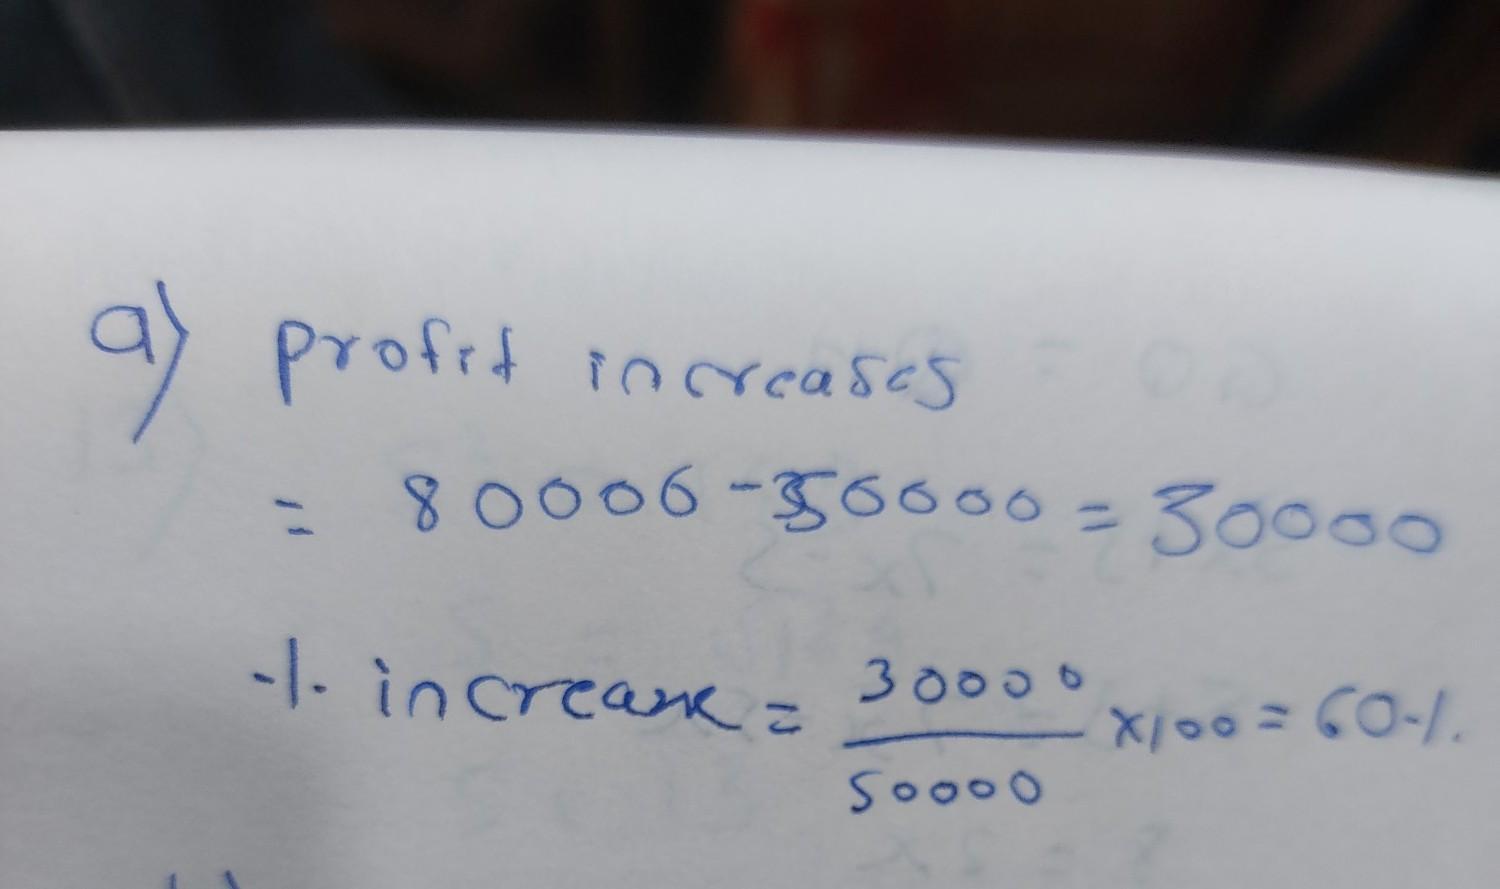 a) profit increases
= 80000 - 50000 = 30000
% increase = 30000 / 50000 x100 = 60%